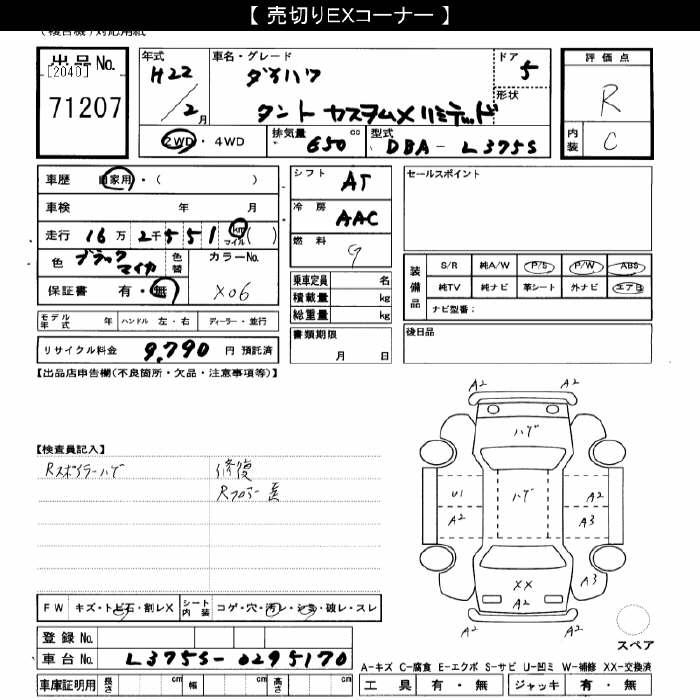 【 売切りEXコーナー 】
(複合機)対応用紙
出品No.
[2040]
71207
年式
H22
/2月
車名・グレード
ダイハツ
タント カスタムX リミテッド
ドア
5
形状
評価点
R
内装
C
2WD・4WD
排気量
650 cc
型式
DBA - L375S
車歴 自家用・( )
車検 年 月
走行 16万 2千551 km マイル ( )
色 ブラックマイカ 色替
カラーNo.
X06
保証書 有・無
モデル年式 年 ハンドル 左・右 ディーラー・並行
リサイクル料金 9,790 円 預託済
シフト AT
冷房 AAC
燃料 G
乗車定員 名
積載量 kg
総重量 kg
書類期限
月 日
セールスポイント
装備品
S/R 純A/W P/S P/W ABS
純TV 純ナビ 革シート 外ナビ エアB
ナビ型番:
後日品
【出品店申告欄(不良箇所・欠品・注意事項等)】
【検査員記入】
Rスポイラーハゲ
修復
Rフロアー
A2 A2
ハゲ
U1 ハゲ A2
A2 A3
XX A3
A2
A2 A2
スペア
FW キズ・トビ石・割レX
シート内装 コゲ・穴・汚レ・シミ・破レ・スレ
登録No.
車台No. L375S-0295170
車庫証明用 長さ cm 幅 cm 高さ cm
A-キズ C-腐食 E-エクボ S-サビ U-凹ミ W-補修 XX-交換済
工具 有・無 ジャッキ 有・無